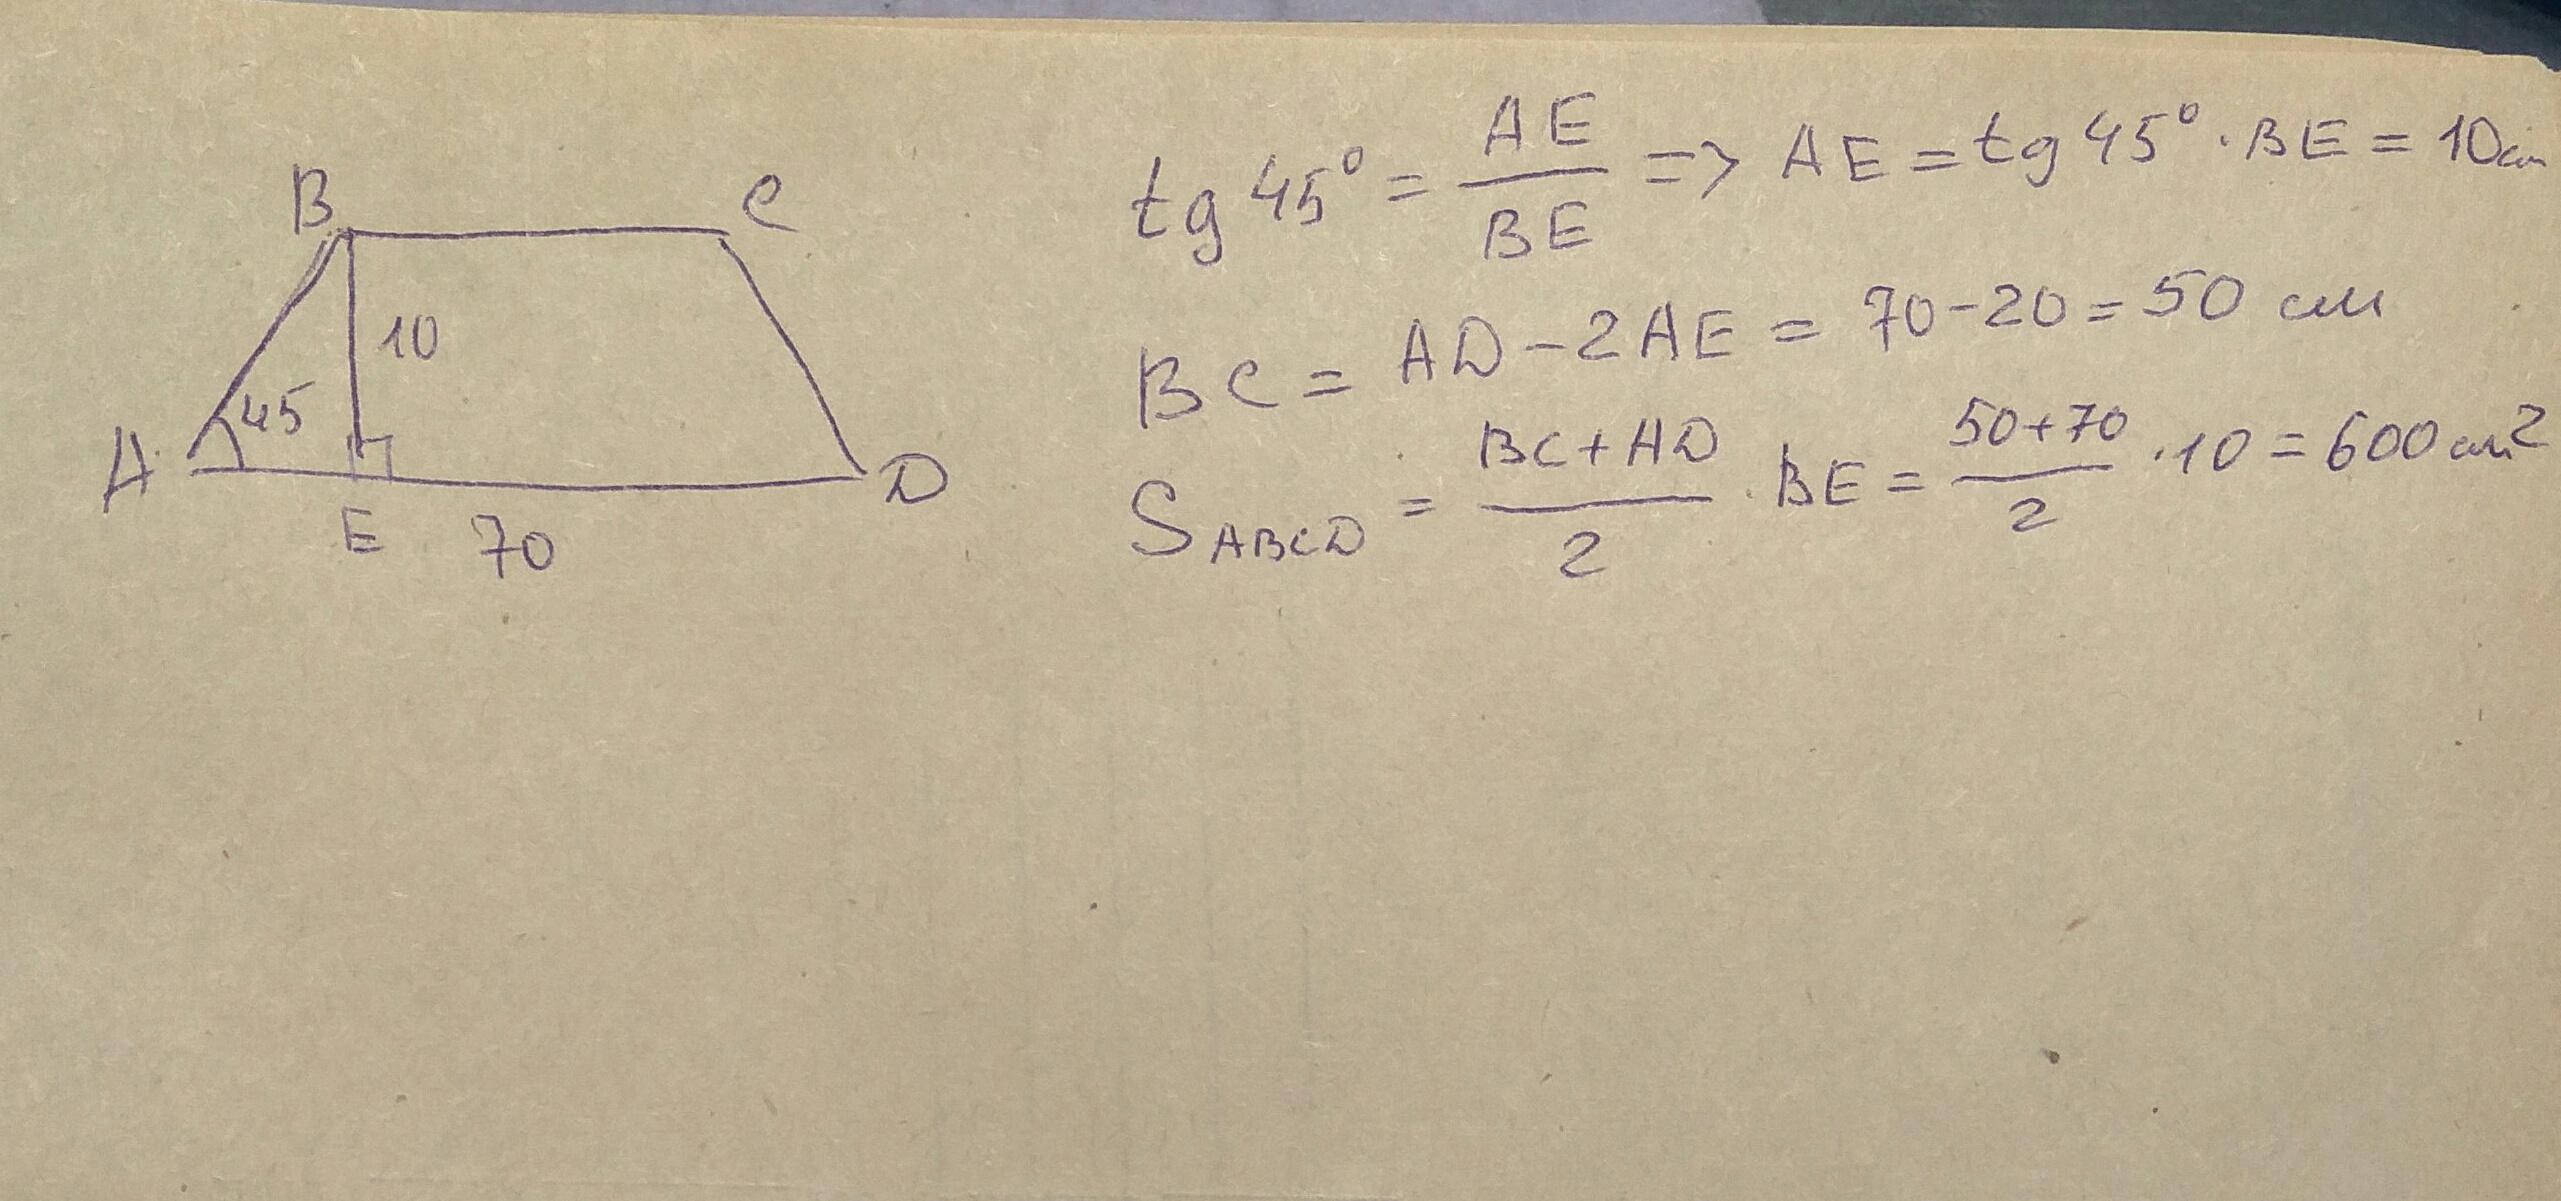 B C
10
45
A D
E 70
tg 45° = AE/BE => AE = tg 45° · BE = 10 см
BC = AD - 2AE = 70 - 20 = 50 см
S ABCD = BC + AD/2 · BE = 50+70/2 · 10 = 600 см²